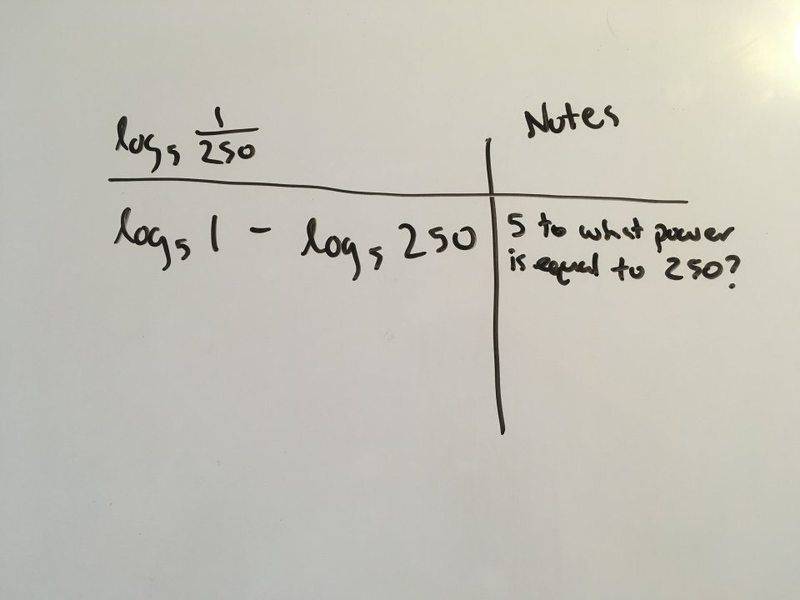 log₅ 1/250
Notes
log₅ 1 - log₅ 250
5 to what power
is equal to 250?